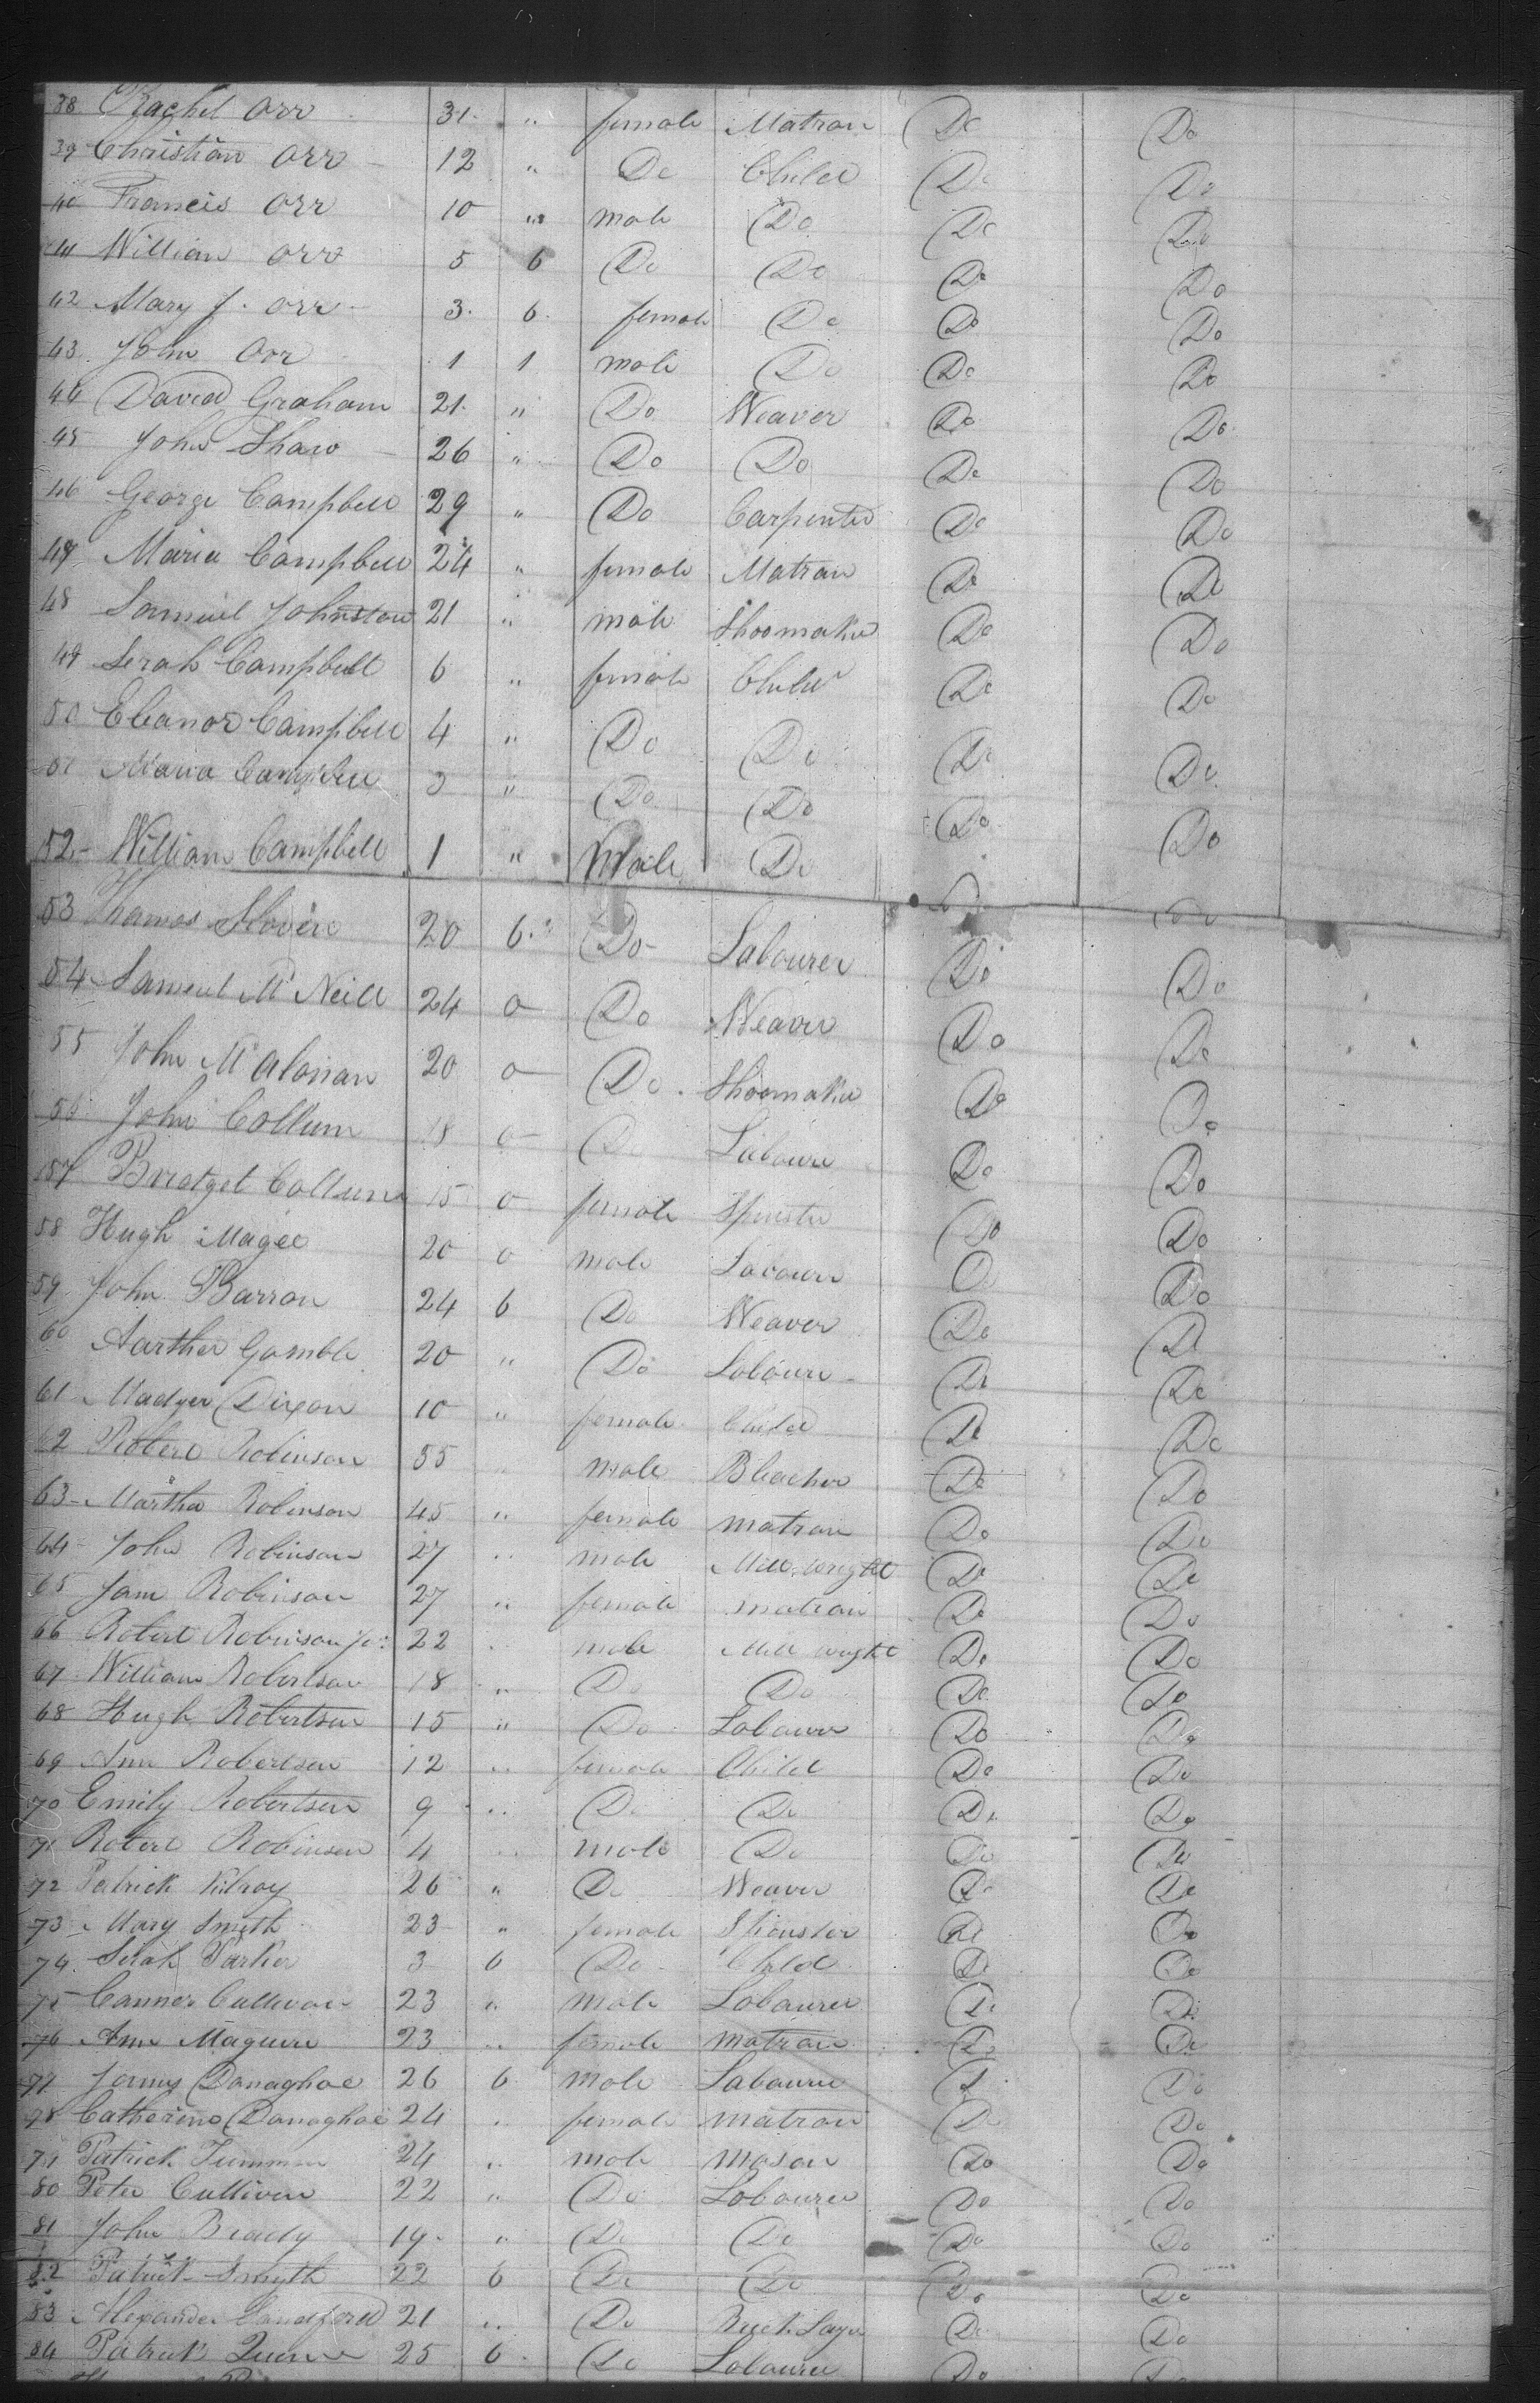 38 Rachel Orr 31 " female Matron Do Do
39 Christian Orr 12 " Do Child Do Do
40 Francis Orr 10 " male Do Do Do
41 William Orr 5 6 Do Do Do Do
42 Mary J. Orr 3 6 female Do Do Do
43 John Orr 1 1 male Do Do Do
44 David Graham 21 " Do Weaver Do Do
45 John Shaw 26 " Do Do Do Do
46 George Campbell 29 " Do Carpenter Do Do
47 Maria Campbell 24 " female Matron Do Do
48 Samuel Johnston 21 " male Shoomaker Do Do
49 Serah Campbell 6 " female Child Do Do
50 Eleanor Campbell 4 " Do Do Do Do
51 Maria Campbell " Do Do Do Do
52 William Campbell 1 " Male Do Do Do
53 Thomas 20 6 Do Labourer Do Do
54 Samuel Mc Neill 24 0 Do Weaver Do Do
55 John Mc Alonan 20 0 Do Shoomaker Do Do
56 John Collum 18 0 Do Labourer Do Do
57 Bridget Collum 15 0 female Spinster Do Do
58 Hugh Magee 20 0 male Labourer Do Do
59 John Barron 24 6 Do Weaver Do Do
60 Aarther Gamble 20 " Do Labourer Do Do
61 Dixon 10 " female Child Do Do
62 Robert Robinson 55 " male Bleacher Do Do
63 Martha Robinson 45 " female matron Do Do
64 John Robinson 27 " male Mill wright Do Do
65 Jane Robinson 27 " female matron Do Do
66 Robert Robinson Jr: 22 " male Mill wright Do Do
67 William Robertson 18 " Do Do Do Do
68 Hugh Robertson 15 " Do Labourer Do Do
69 Ann Robertson 12 " female Child Do Do
70 Emily Robertson 9 " Do Do Do Do
71 Robert Robinson 4 " male Do Do Do
72 Patrick Kilroy 26 " Do Weaver Do Do
73 Mary Smith 23 " female Spinster Do Do
74 Serah Parker 3 6 Do Child Do Do
75 Conner Cullivan 23 " male Labourer Do Do
76 Ann Maguire 23 " female matron Do Do
77 James Donaghoe 26 6 male Labourer Do Do
78 Catherine Donaghoe 24 " female matron Do Do
79 Patrick 24 " male mason Do Do
80 Peter Culliven 22 " Do Labourer Do Do
81 John Brady 19 " Do Do Do Do
82 Patrick Smyth 22 6 Do Do Do Do
83 Alexander 21 " Do Brick Layer Do Do
84 Patrick Quinn 25 6 Do Labourer Do Do